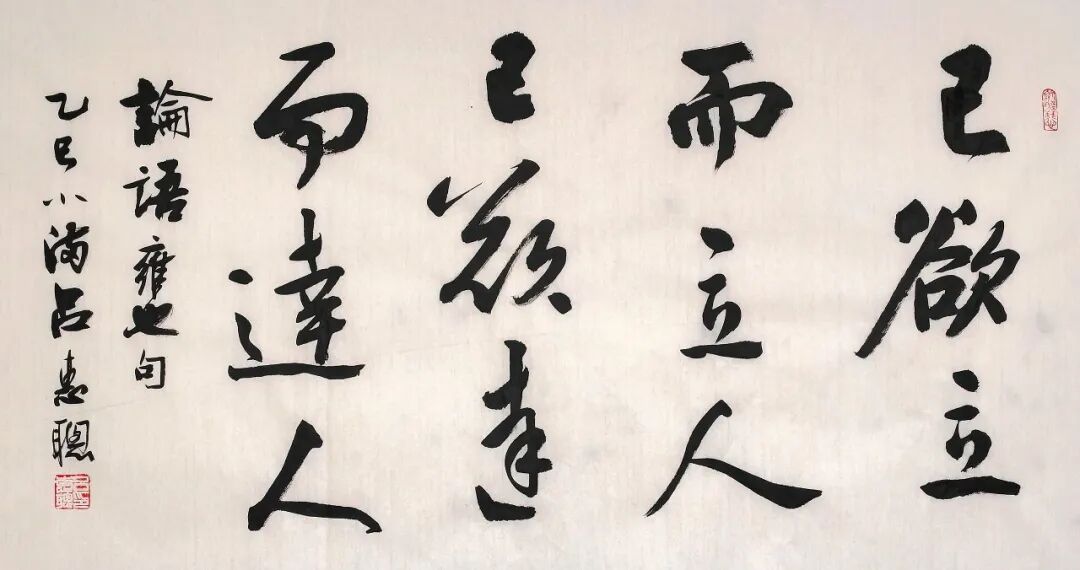 己欲立
而立人
己欲達
而達人
論語雍也句
乙巳小滿呂惠聰